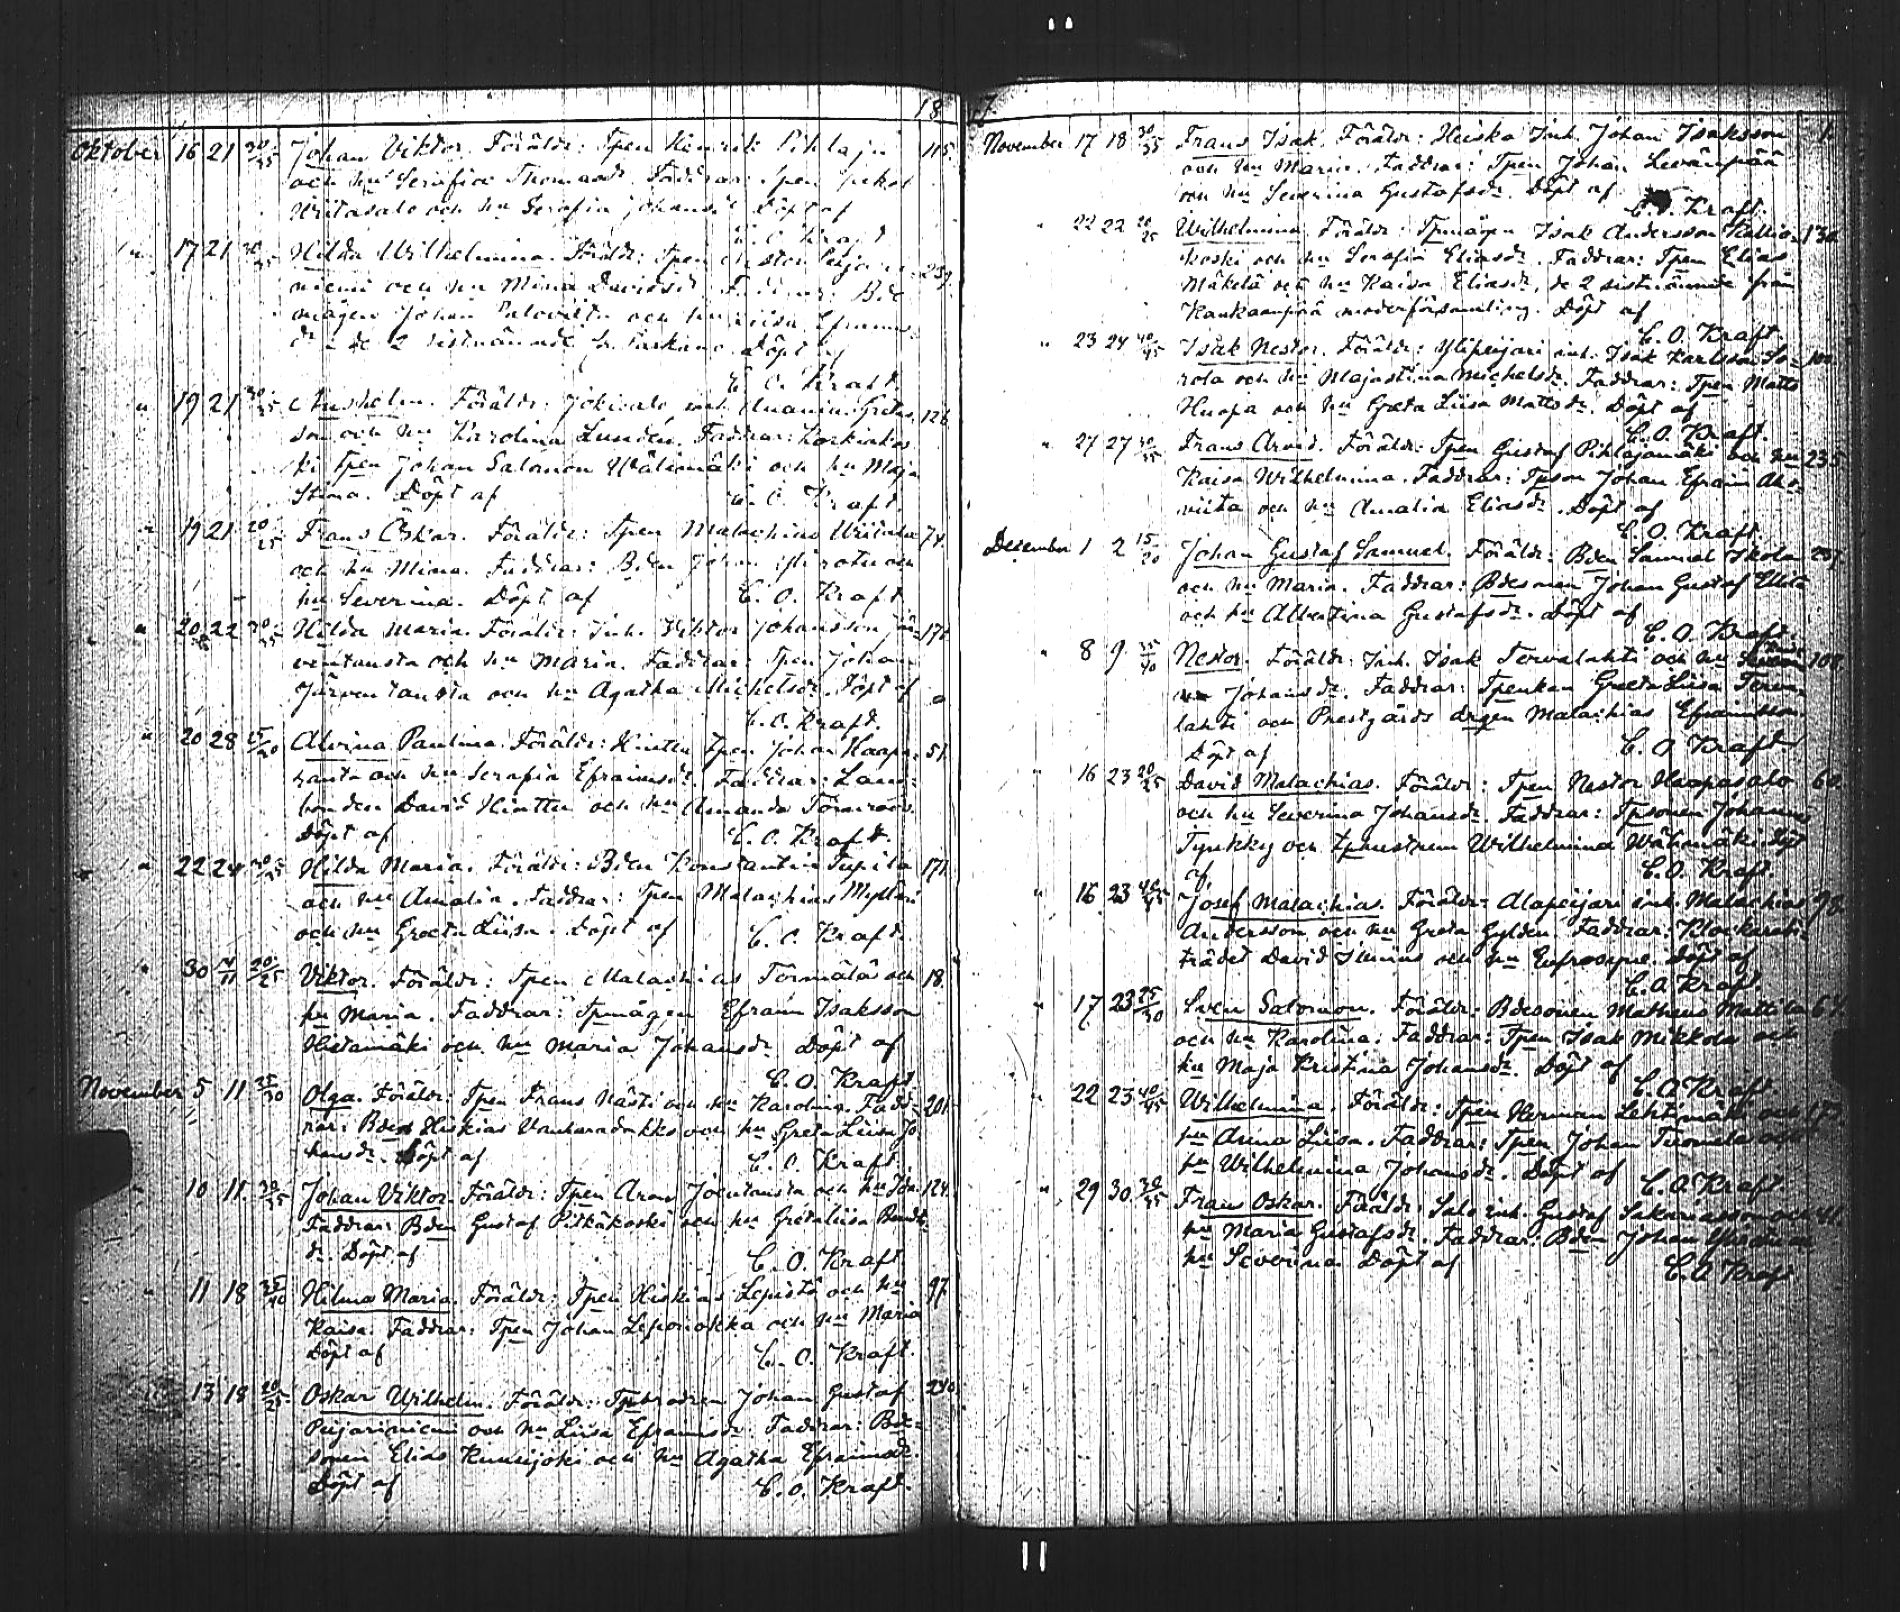 18
Oktober 16 21 30/35 Johan Viktor. Föräldr: Tpen Henrik Pihlaja 115.
och hu Serafia Thomasdr. Faddrar: Tpen
Wiitasalo och hu Serafia Johansdr Döpt af
C. O. Kraft
" 17 21 Hilda Wilhelmina. Föräldr: Tpen Nestor 239.
niemi och hu Mina Davidsdr. Faddrar: Bde
mågen Johan Palovitu och hu Liisa Efraims
dr de 2 sistnämnde fr. Parkano. Döpt af
C. O. Kraft.
" 19 21 30/35 Anshelm. Föräldr: Jokisalo inh. Ananias Gretas 126
son och hu Karolina Lundén. Faddrar: Korkiakos
ki Tpen Johan Salomon Wälimäki och hu Maja
Stina. Döpt af C. O. Kraft.
" 19 21 20/25 Frans Oskar. Föräldr: Tpen Malachias Wiitala 74.
och hu Mina. Faddrar: Bden Johan och
hu Severina. Döpt af C. O. Kraft
" 20 22 30/35 Hilda Maria. Föräldr: Inh. Viktor Johansson Jär= 170
ventausta och hu Maria. Faddrar: Tpen Johan
Järventausta och hu Agatha Michelsdr. Döpt af
C. O. Kraft.
" 20 28 15/20 Alvina Paulina. Föräldr: Hinttu Tpen Johan Haapa= 51.
ranta och hu Serafia Efraimsdr. Faddrar: Land=
bonden David Hinttu och hu Amanda Törnroos.
Döpt af C. O. Kraft.
" 22 24 Hilda Maria. Föräldr: Bden Konstantin Tupila 171.
och hu Amalia. Faddrar: Tpen Malachias Myllari
och hu Greta Liisa. Döpt af C. O. Kraft.
" 30 4/11 20/25 Viktor. Föräldr: Tpen Malachias Törmälä och 18.
hu Maria. Faddrar: Tpmågen Efraim Isaksson
Hietamäki och hu Maria Johansdr Döpt af
C. O. Kraft
November 5 11 25/30 Olga. Föräldr: Tpen Frans Nästi och hu Karolina. Fadd= 201.
rar: Bden Hiskias Vanharadakko och hu Greta Liisa Jo
hansdr. Döpt af C. O. Kraft.
" 10 11 30/35 Johan Viktor. Föräldr: Tpen Aron Joentausta och hu Ida. 124.
Faddrar: Bden Gustaf Pitkäkoski och hu Greta Liisa
dr. Döpt af C. O. Kraft
" 11 18 35/40 Hilma Maria. Föräldr: Tpen Hiskias Lepistö och hu 97.
Kaisa. Faddrar: Tpen Johan Leponokka och hu Maria
Döpt af C. O. Kraft.
" 13 18 20/25 Oskar Wilhelm. Föräldr: Tpbrodren Johan Gustaf 240.
Peijariniemi och hu Liisa Efraimsdr. Faddrar: Bde=
sonen Elias Kuusijoki och hu Agatha Efraimsdr.
Döpt af C. O. Kraft.
7.
November 17 18 30/35 Frans Isak. Föräldr: Heiska Inh. Johan Isaksson 1.
och hu Maria. Faddrar: Tpen Johan Levänpää
och hu Severina Gustafsdr. Döpt af
C. O. Kraft.
" 22 22 20/25 Wilhelmina. Föräldr: Tpmågen Isak Andersson Kallio= 130.
koski och hu Serafia Eliasdr. Faddrar: Tpen Elias
Mäkelä och hu Kaisa Eliasdr, de 2 sistnämnde från
Kankaanpää moderförsamling. Döpt af
C. O. Kraft.
" 23 24 40/45 Isak Nestor. Föräldr: Ylipeijari inh. Isak Karlsson So= 100.
rola och hu Majastina Michelsdr. Faddrar: Tpen Matts
Huopa och hu Greta Liisa Mattsdr. Döpt af
C. O. Kraft.
" 27 27 30/35 Frans Arvid. Föräldr: Tpen Gustaf Pihlajamäki och hu 235.
Kaisa Wilhelmina. Faddrar: Tpson Johan Efraim Aho=
viita och hu Amalia Eliasdr. Döpt af
C. O. Kraft.
December 1 2 15/20 Johan Gustaf Samuel. Föräldr: Bden Samuel Ikola 207.
och hu Maria. Faddrar: Bdesonen Johan Gustaf Ellilä
och hu Albertina Gustafsdr. Döpt af
C. O. Kraft.
" 8 9 35/40 Nestor. Föräldr: Inh. Isak Tervalahti och hu 108.
Johansdr. Faddrar: Tpenkan Greta Liisa Terva=
lahti och Prestgårds drgen Malachias Efraimsson.
Döpt af C. O. Kraft
" 16 23 20/25 David Malachias. Föräldr: Tpen Nestor Haapasalo 60.
och hu Severina Johansdr. Faddrar: Tpsonen Johannes
Tynkky och Tphustrun Wilhelmina Wähämäki. Döpt
af. C. O. Kraft.
" 16 23 40/45 Josef Malachias. Föräldr: Alapeijari inh. Malachias 98.
Andersson och hu Greta Gyldén. Faddrar: Klockarebi=
trädet David Ilmius och hu Eufrosyne. Döpt af
C. O. Kraft
" 17 23 25/30 Sven Salomon. Föräldr: Bdesonen Matheus Mattila 64.
och hu Karolina. Faddrar: Tpen Isak Mikkola och
hu Maja Kristina Johansdr. Döpt af
C. O. Kraft.
" 22 23 40/45 Wilhelmina. Föräldr: Tpen Herman Lehtimäki och 177.
hu Anna Liisa. Faddrar: Tpen Johan Tuomela och
hu Wilhelmina Johansdr. Döpt af C. O. Kraft
" 29 30. 30/35 Frans Oskar. Föräldr: Salo inh. Gustaf Sakariasson och 41.
hu Maria Gustafsdr. Faddrar: Bden Johan
hu Severina Döpt af C. O. Kraft